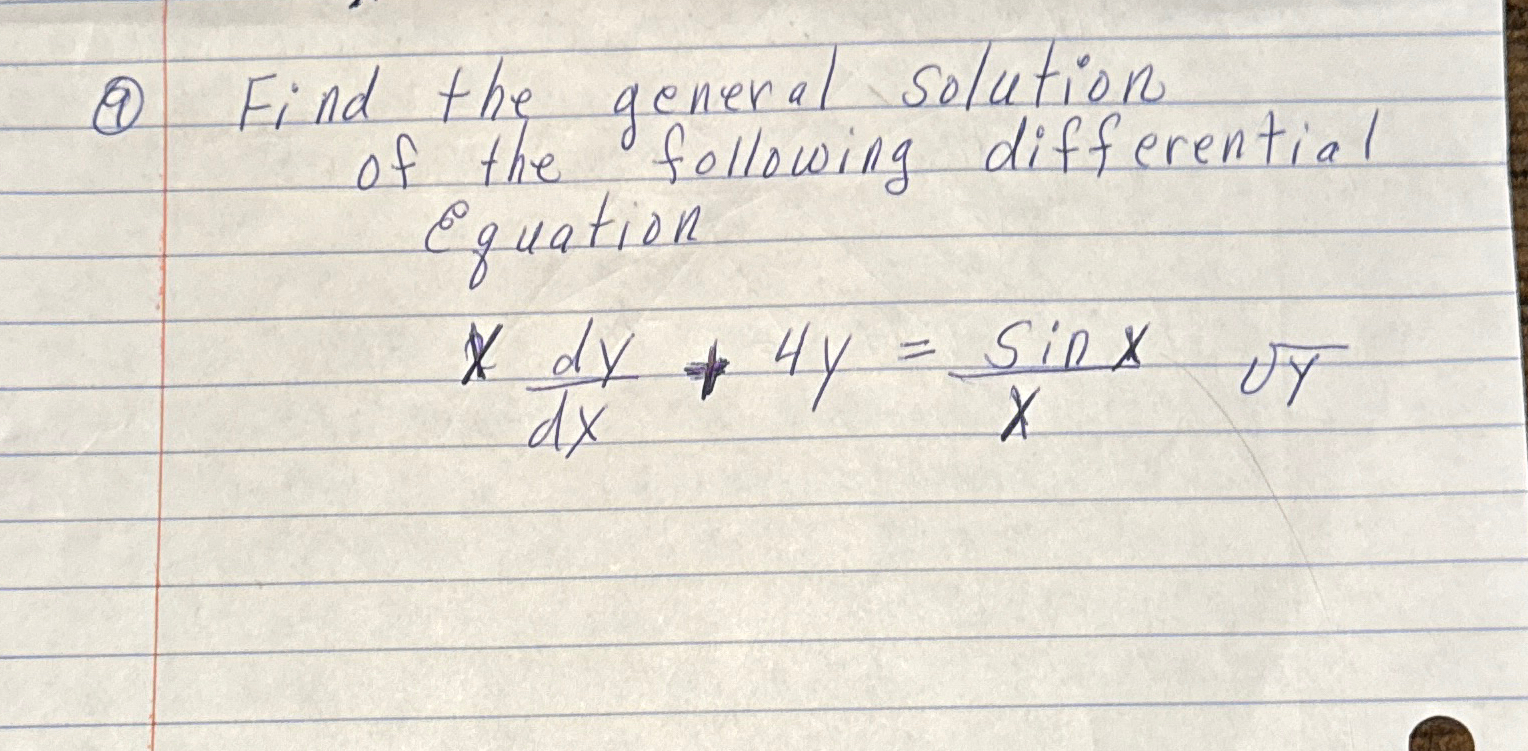 ⑨ Find the general solution
of the following differential
equation
x dy/dx + 4y = sin x/x √y